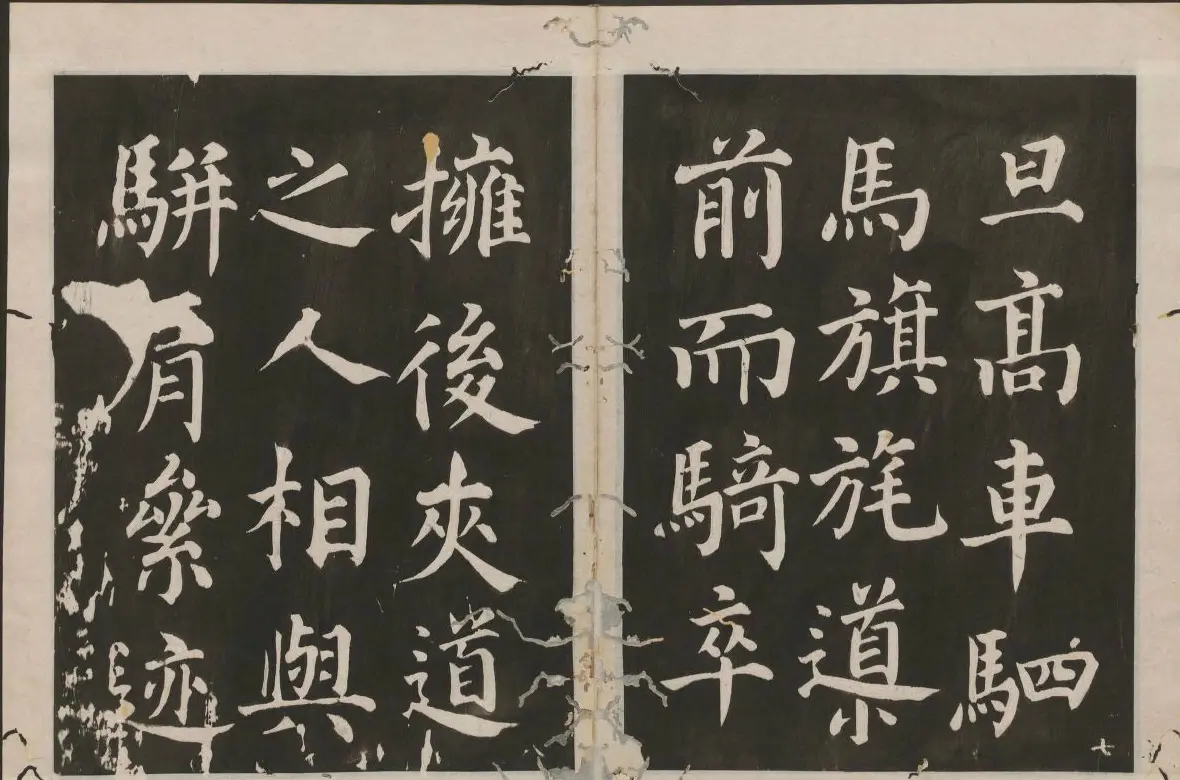 旦髙車駟
馬旗旄導
前而騎卒
擁後夾道
之人相與
駢肩絫迹
七